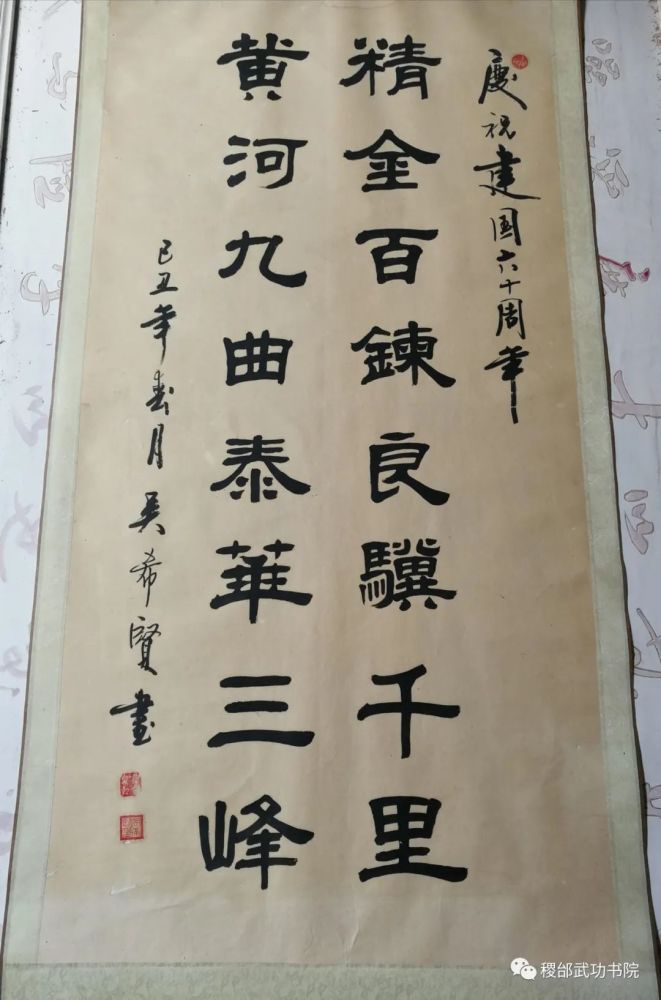 慶祝建國六十周年
精金百鍊良驥千里
黄河九曲泰華三峰
己丑年春月吴希賢書
稷邰武功书院